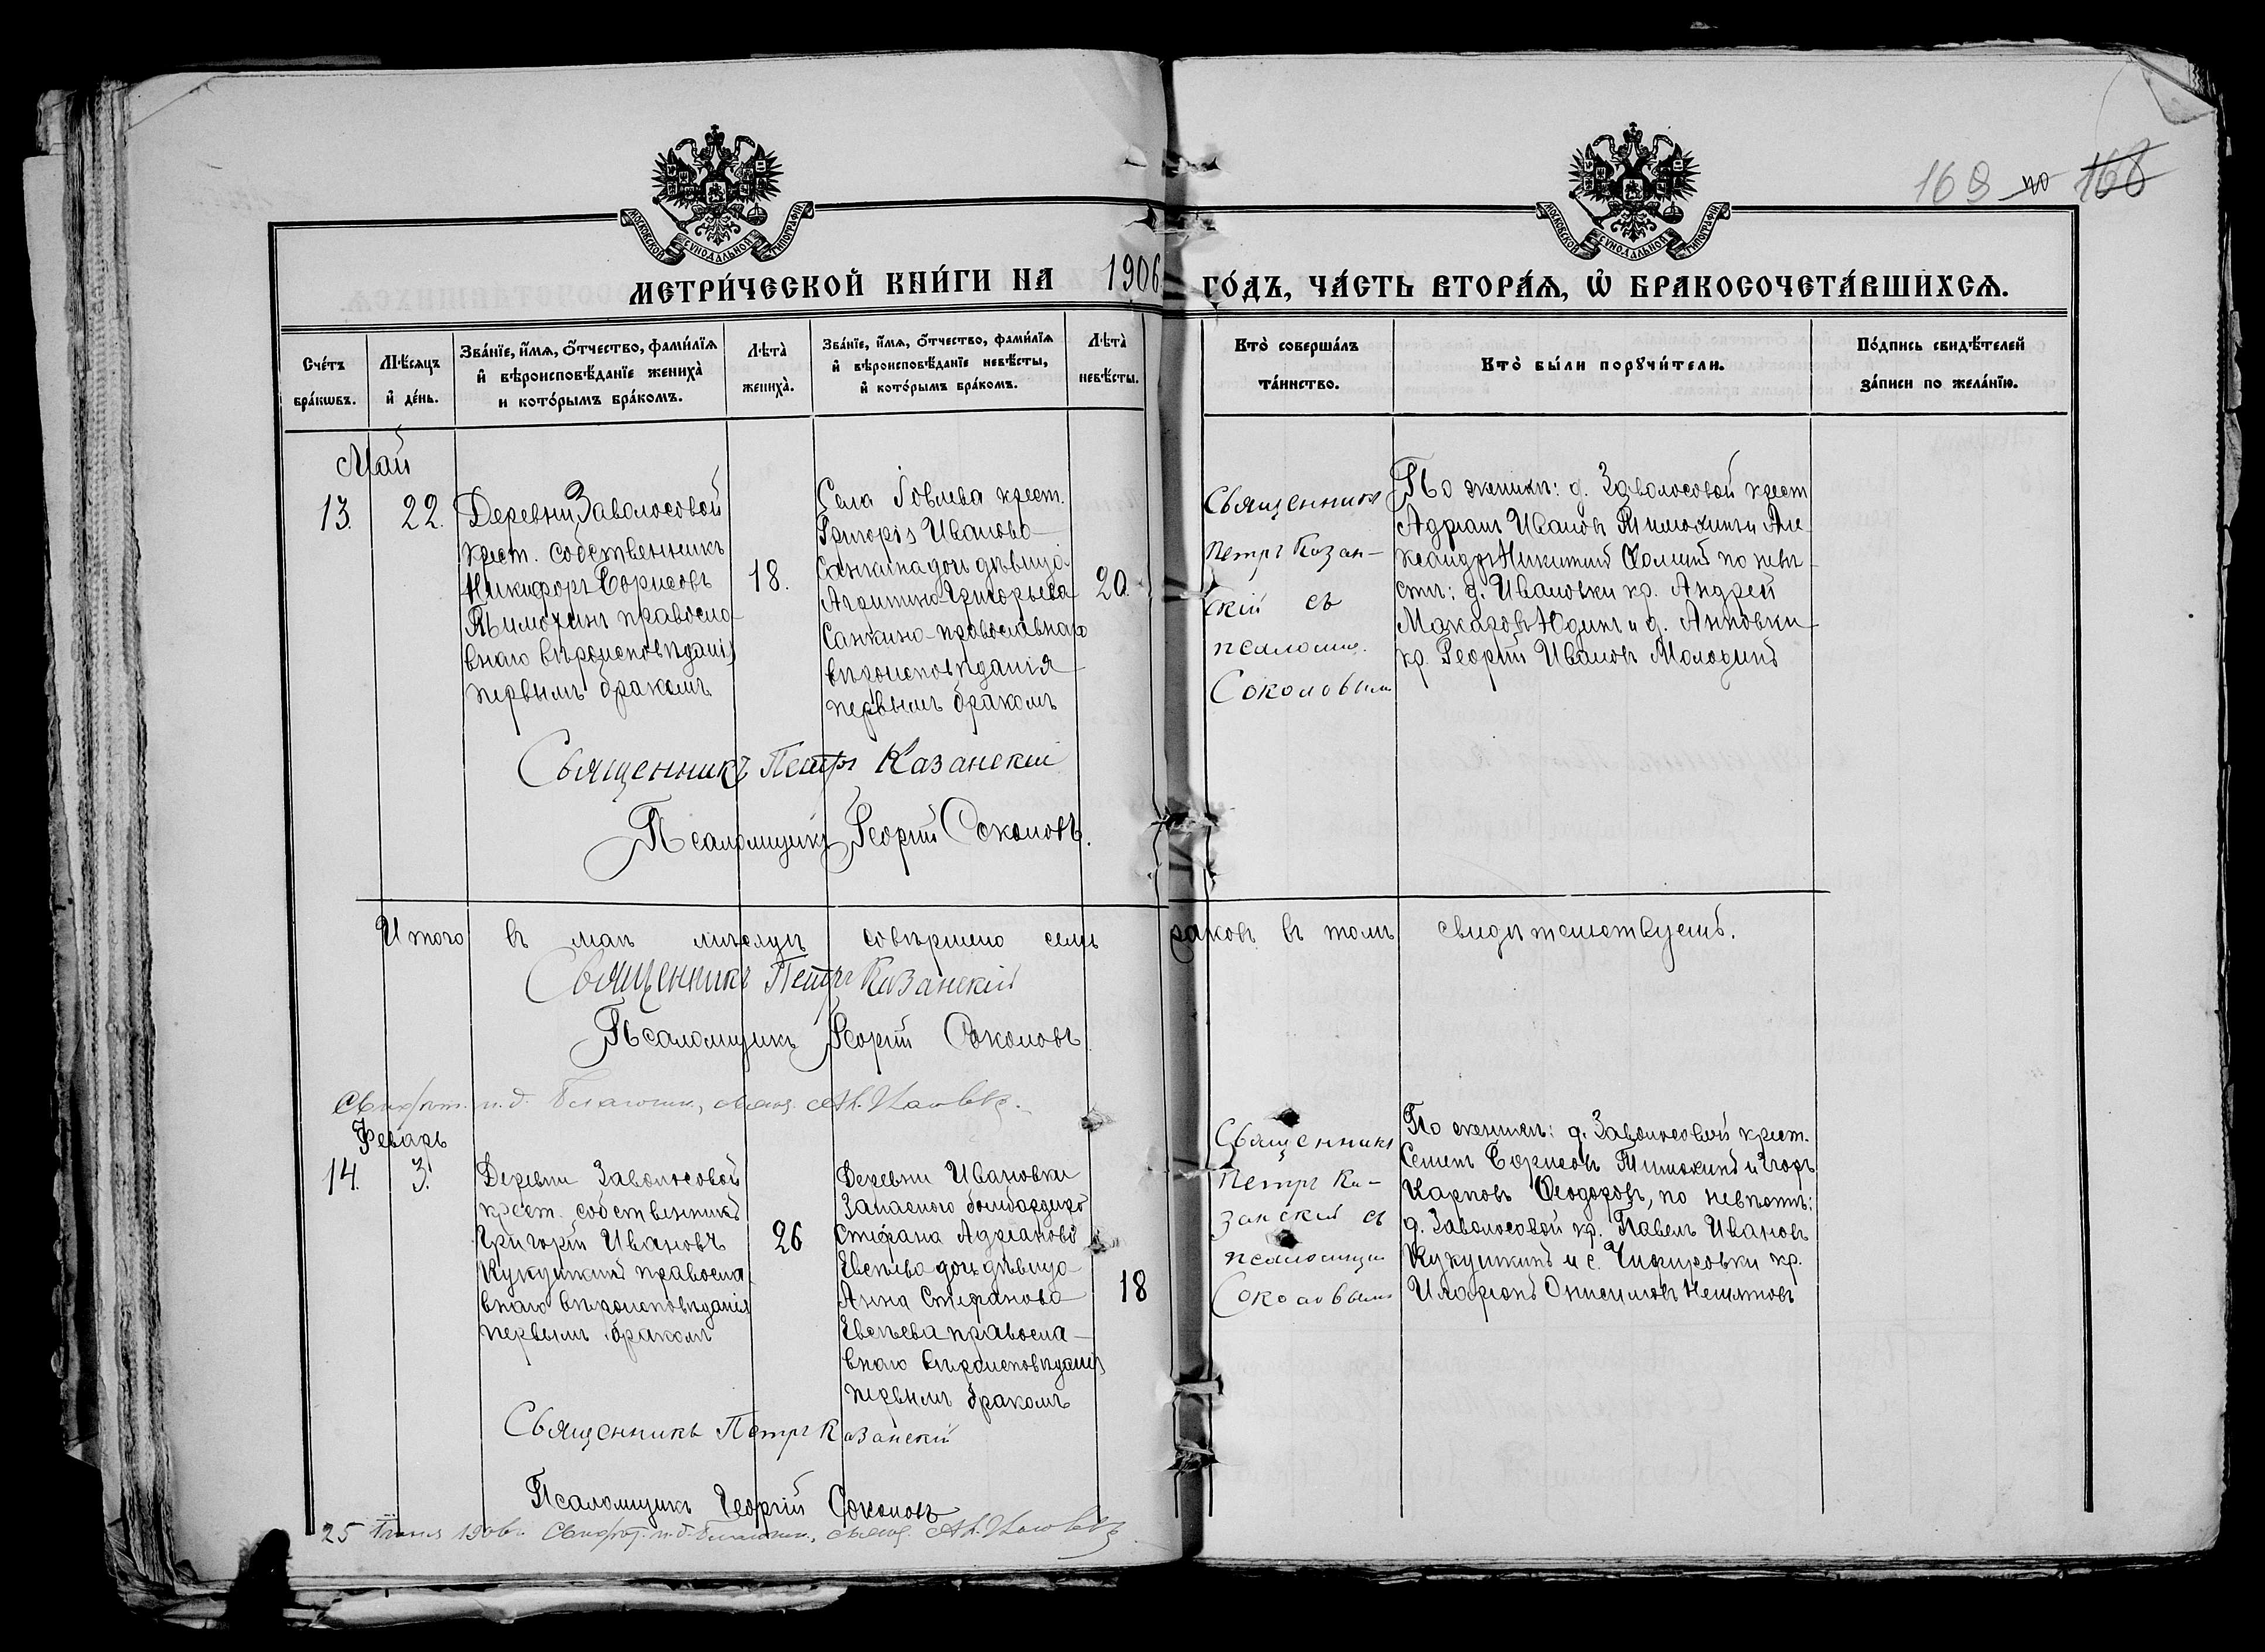 168
168
МОСКОВСКОЙ СѴНОДАЛЬНОЙ ТИПОГРАФІИ
МОСКОВСКОЙ СѴНОДАЛЬНОЙ ТИПОГРАФІИ
МЕТРИ́ЧЕСКОЙ КНИ́ГИ НА 1906 ГО́ДЪ, ЧА́СТЬ ВТОРА́Ѧ, Ѡ҆ БРАКОСОЧЕТА́ВШИХСѦ.
Сче́тъ
бра́кѡвъ.
Мѣ́сѧцъ
и҆ де́нь.
Зва́нїе, и҆́мѧ, ѻ҆́тчество, фами́лїѧ
и҆ вѣроисповѣ́данїе жениха̀
и кото́рымъ бра́комъ.
Лѣта̀
жениха̀.
Зва́нїе, и҆́мѧ, ѻ҆́тчество, фами́лїѧ
и҆ вѣроисповѣ́данїе невѣ́сты,
и҆ кото́рымъ бра́комъ.
Лѣта̀
невѣ́сты.
Кто̀ соверша́лъ
та́инство.
Кто̀ бы́ли порꙋчи́тели.
По́дпись свидѣ́телей
за́писи по жела́нїю.
Май
13.
22.
Деревни Заволосовой
крест. собственникъ
Никифоръ Борисовъ
Тимохинъ правосла-
внаго вѣроисповѣданія
первымъ бракомъ
18.
Села крест.
Григорія Иванова
Санкина дочь дѣвица
Григорьева
Санкина православнаго
вѣроисповѣданія
первымъ бракомъ
20.
Священникъ
Петръ Казан-
скій съ
псаломщ.
Соколовымъ
По женихѣ: д. Заволосовой крест
Адріанъ Ивановъ Тимохинъ и Але-
ксандръ Никитинъ Фоминъ по невѣ-
стѣ: д. Ивановки кр. Андрей
Макаровъ Юдинъ и д. Анновки
кр. Георгій Ивановъ Молохинъ
Священникъ Петръ Казанскій
Псаломщикъ Георгій Соколовъ.
Итого въ маѣ мѣсяцѣ совершено семь раковъ въ томъ свидѣтельствуемъ.
Священникъ Петръ Казанскій
Псаломщикъ Георгій Соколовъ
Февраль
14.
3.
Деревни Заволосовой
крест. собственникъ
Григорій Ивановъ
Кукушкинъ правосла-
внаго вѣроисповѣданія
первымъ бракомъ
26
Деревни Ивановки
Запаснаго бомбардира
Стефана Адріанова
Евсѣева дочь дѣвица
Анна Стефанова
Евсѣева правосла-
внаго вѣроисповѣданія
первымъ бракомъ
18
Священникъ
Петръ Ка-
занскій съ
псаломщик
Соколовымъ
По женихѣ: д. Заволосовой крест.
Семенъ Борисовъ Тимохинъ и Егоръ
Карповъ Ѳеодоровъ, по невѣстѣ:
д. Заволосовой кр. Павелъ Ивановъ
Кукушкинъ и с. Чифировки кр.
Иларіонъ Онисимовъ
Священникъ Петръ Казанскій
Псаломщикъ Георгій Соколовъ
25 1906